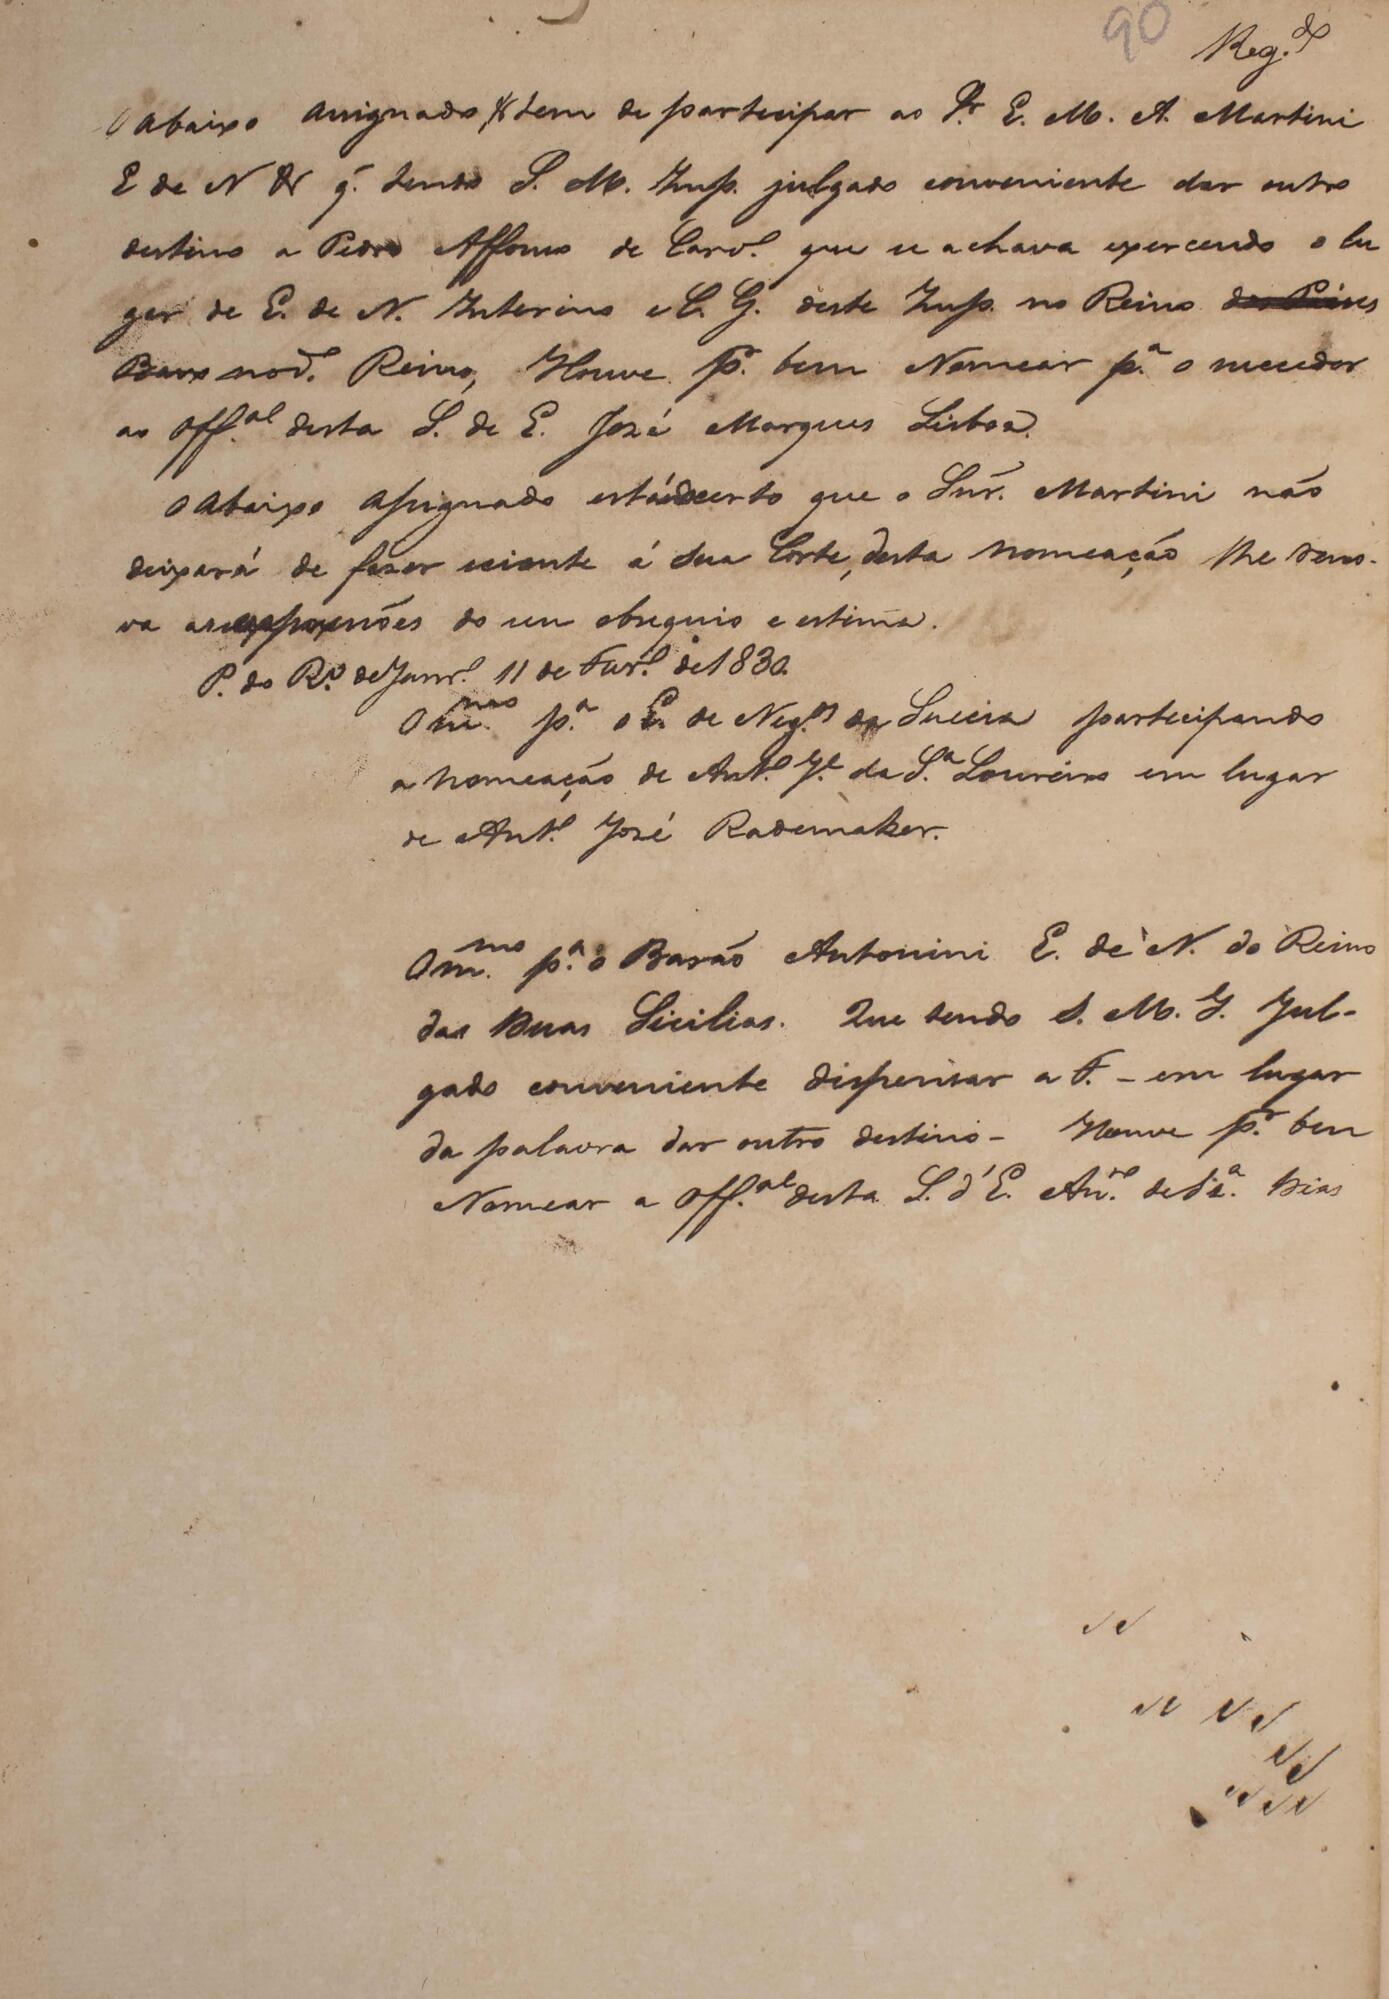 90 Reg.do
O abaixo assignado tem de participar ao Sr. E. M. A. Martini
E de N q. tendo S. M. Imp. julgado conveniente dar outro
destino a Pedro Affonso de Carv.o que se achava exercendo o lu
gar de E. de N. Interino e C. G. deste Imp. no Reino dos Paises
Baxos no d.o Reino, Houve p.r bem Nomear p.a o succeder
ao Off.al desta S. de E. José Marques Lisboa.
O Abaixo Assignado está certo que o Snr. Martini não
deixará de fazer sciente á sua Corte, desta nomeação lhe reno-
va as expressões do seu obsequio e estima.
P. do R.o de Janr.o 11 de Fevr.o de 1830.
O m.mo p.a o E. de Neg.os da Suecia participando
a nomeação de Ant.o J.e da S.a Loureiro em lugar
de Ant.o José Rademaker.
O m.mo p.a o Barão Antonini E. de N. do Reino
das Duas Sicilias. Que tendo S. M. I. Jul-
gado conveniente dispensar a F. - em lugar
da palavra dar outro destino - Houve p.r bem
Nomear a Off.al desta S. d'E. de S.a Dias